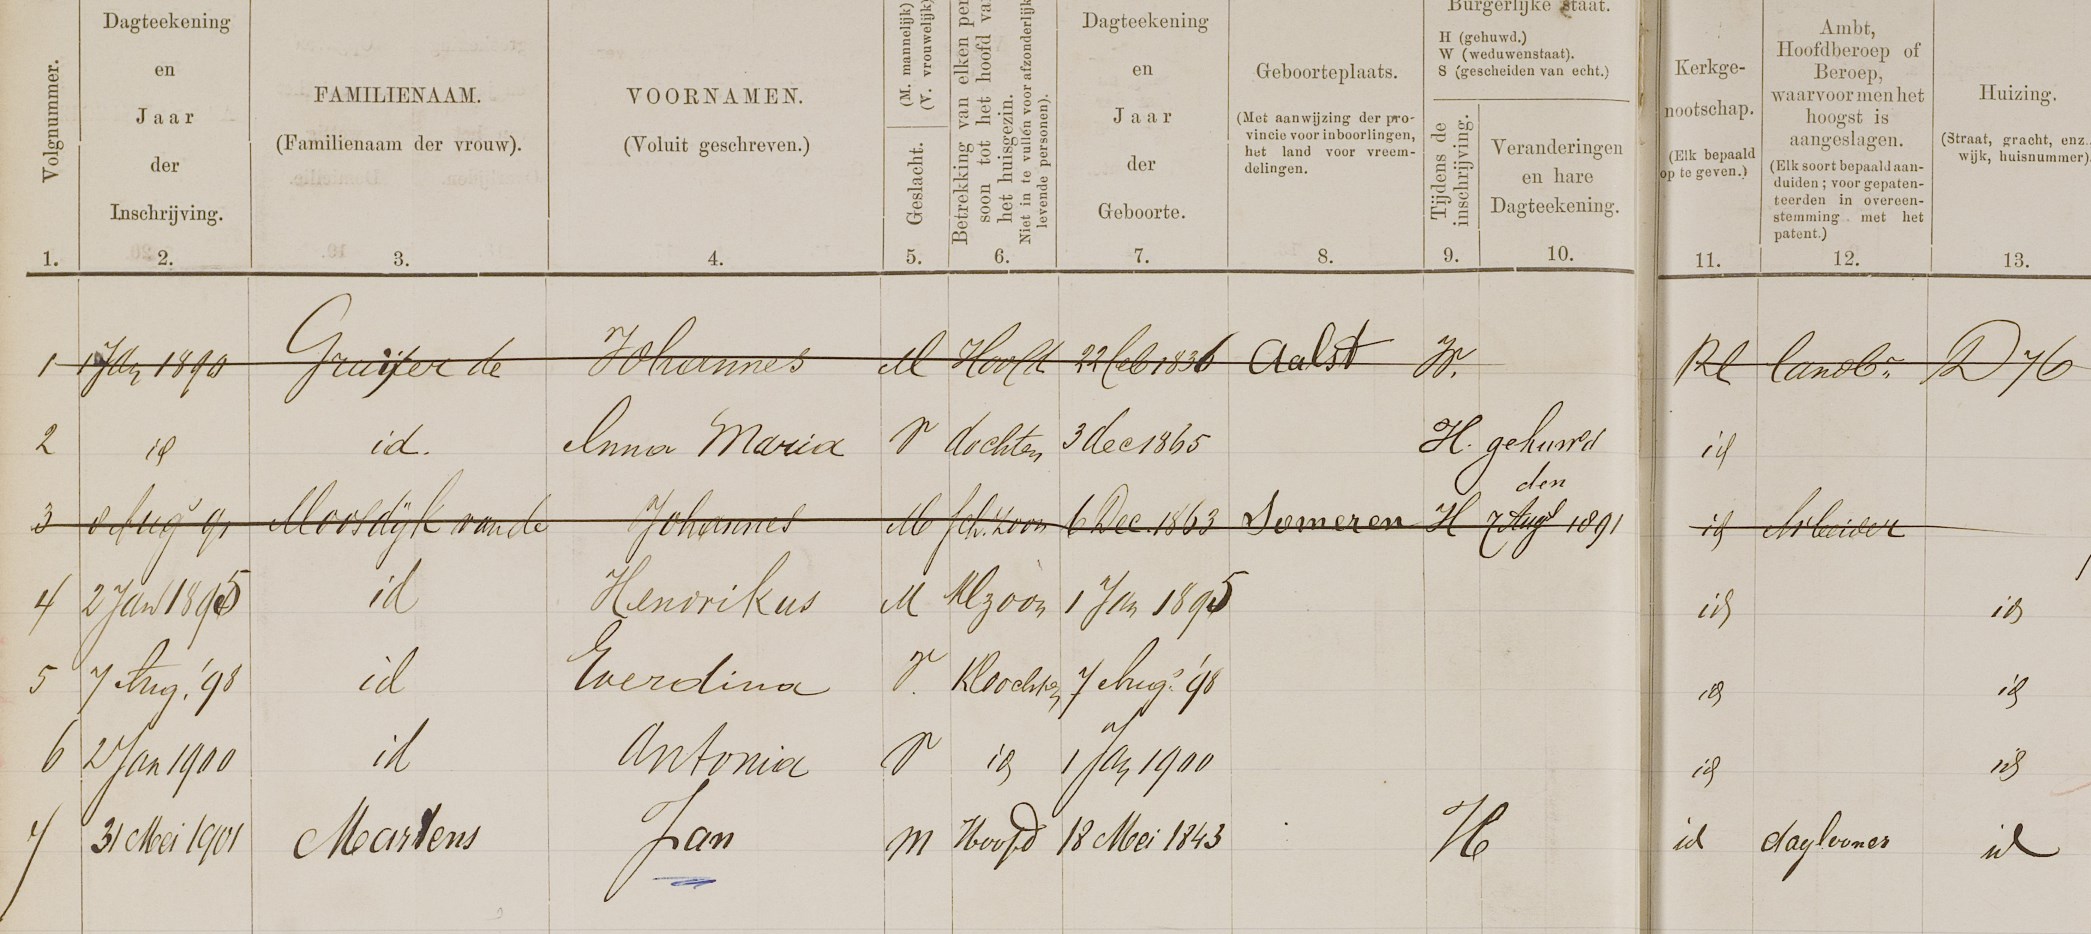 Volgnummer.
Dagteekening
en
Jaar
der
Inschrijving.
FAMILIENAAM.
(Familienaam der vrouw).
VOORNAMEN.
(Voluit geschreven.)
Geslacht.
(M. mannelijk)
(V. vrouwelijk)
Betrekking van elken per
soon tot het hoofd va
het huisgezin.
Niet in te vullen voor afzonderlijk
levende personen).
Dagteekening
en
Jaar
der
Geboorte.
Geboorteplaats.
(Met aanwijzing der pro-
vincie voor inboorlingen,
het land voor vreem-
delingen.
Burgerlijke staat.
H (gehuwd.)
W (weduwenstaat).
S (gescheiden van echt.)
Tijdens de
inschrijving.
Veranderingen
en hare
Dagteekening.
Kerkge-
nootschap.
(Elk bepaald
op te geven.)
Ambt,
Hoofdberoep of
Beroep,
waarvoor men het
hoogst is
aangeslagen.
(Elk soort bepaald aan-
duiden; voor gepaten-
teerden in overeen-
stemming met het
patent.)
Huizing.
(Straat, gracht, enz.
wijk, huisnummer)
1. 2. 3. 4. 5. 6. 7. 8. 9. 10. 11. 12. 13.
1 1 Jan 1890 Gruijter de Johannes M Hoofd 22 feb 1836 Aalst W. RC landbr D 76
2 id id. Anna Maria V dochter 3 dec 1865 H. gehuwd id
den
3 8 Augs 91 Moosdijk van de Johannes M sch. zoon 6 Dec. 1863 Someren H 7 Augs 1891 id Arbeider
4 2 Jan 1895 id Henrikus M Klzoon 1 Jan 1895 id id
5 7 Aug. '98 id Everdina V. Kldochter 7 Augs '98 id id
6 2 Jan 1900 id Antonia V id 1 Jan 1900 id id
7 31 Mei 1901 Martens Jan M Hoofd 18 Mei 1843 H id daglooner id